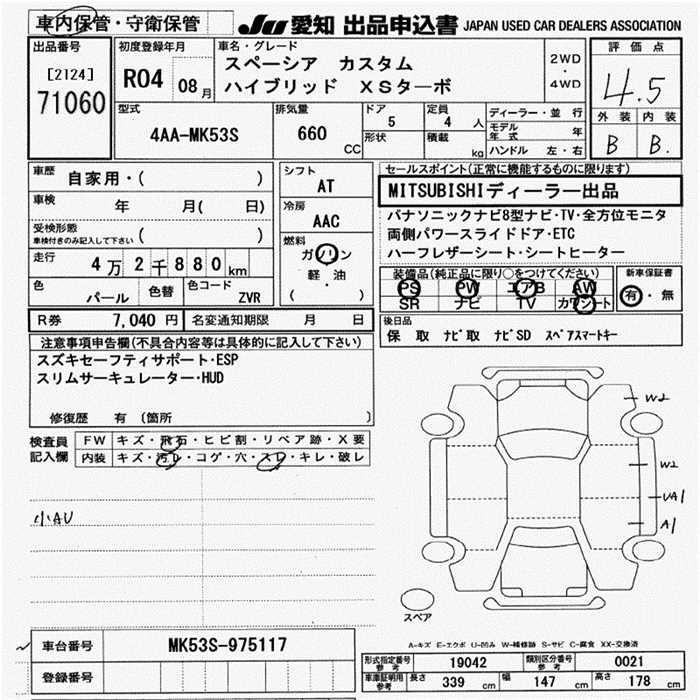 車内保管・守衛保管
JU 愛知 出品申込書 JAPAN USED CAR DEALERS ASSOCIATION
出品番号
[2124]
71060
初度登録年月
R04 08月
車名・グレード
スペーシア カスタム
ハイブリッド XSターボ
2WD
・
4WD
評価点
4.5
外装 内装
B B.
型式
4AA-MK53S
排気量
660 CC
ドア
5
形状
定員
4 人
積載
kg
ディーラー・並行
モデル年式 年
ハンドル 左・右
車歴 自家用・( )
車検 年 月( 日)
受検形態
車検付きのみ記入して下さい ( )
走行 4万2千880km
色 パール 色替 色コード ZVR
シフト
AT
冷房
AAC
燃料
ガソリン
軽・油
( )
セールスポイント(正常に機能するものに限ります)
MITSUBISHIディーラー出品
パナソニックナビ8型ナビ・TV・全方位モニタ
両側パワースライドドア・ETC
ハーフレザーシート・シートヒーター
装備品(純正品に限り○をつけてください)
PS PW エアB AW
SR ナビ TV カワシート
新車保証書
有・無
R券 7,040 円 名変通知期限 月 日
後日品
保 取 ナビ取 ナビSD スペアスマートキー
注意事項申告欄(不具合内容等は具体的に記入して下さい)
スズキセーフティサポート・ESP
スリムサーキュレーター・HUD
修復歴 有 〔箇所 〕
検査員
記入欄
FW キズ・飛石・ヒビ割・リペア跡・X要
内装 キズ・汚レ・コゲ・穴・スレ・キレ・破レ
小AU
W2
W2
UA1
A1
スペア
A-キズ E-エクボ U-凹み W-補修跡 S-サビ C-腐食 XX-交換済
車台番号 MK53S-975117
登録番号
形式指定番号参考 19042 類別区分番号参考 0021
車庫証明用参考 長さ 339 cm 幅 147 cm 高さ 178 cm